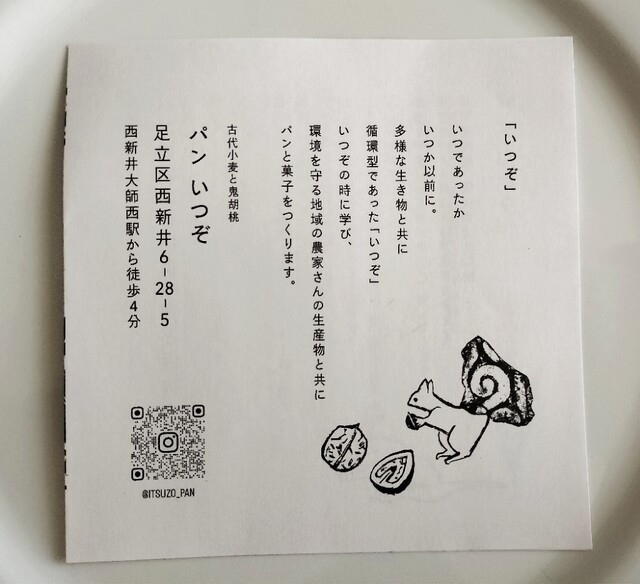 「いつぞ」
いつであったか
いつか以前に。
多様な生き物と共に
循環型であった「いつぞ」
いつぞの時に学び、
環境を守る地域の農家さんの生産物と共に
パンと菓子をつくります。
古代小麦と鬼胡桃
パン いつぞ
足立区西新井6-28-5
西新井大師西駅から徒歩4分
@ITSUZO_PAN